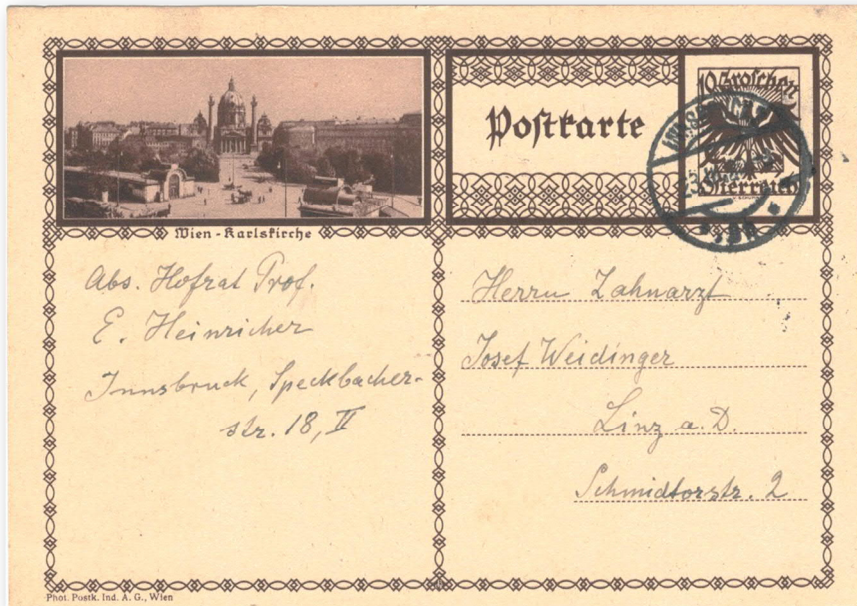 Postkarte
10 Groschen
Österreich
Wien - Karlskirche
Abs. Hofrat Prof.
E. Heinricher
Innsbruck, Speckbacher-
str. 18, II
Herrn Zahnarzt
Josef Weidinger
Linz a. D.
Schmidtorstr. 2
Phot. Postk. Ind. A. G., Wien